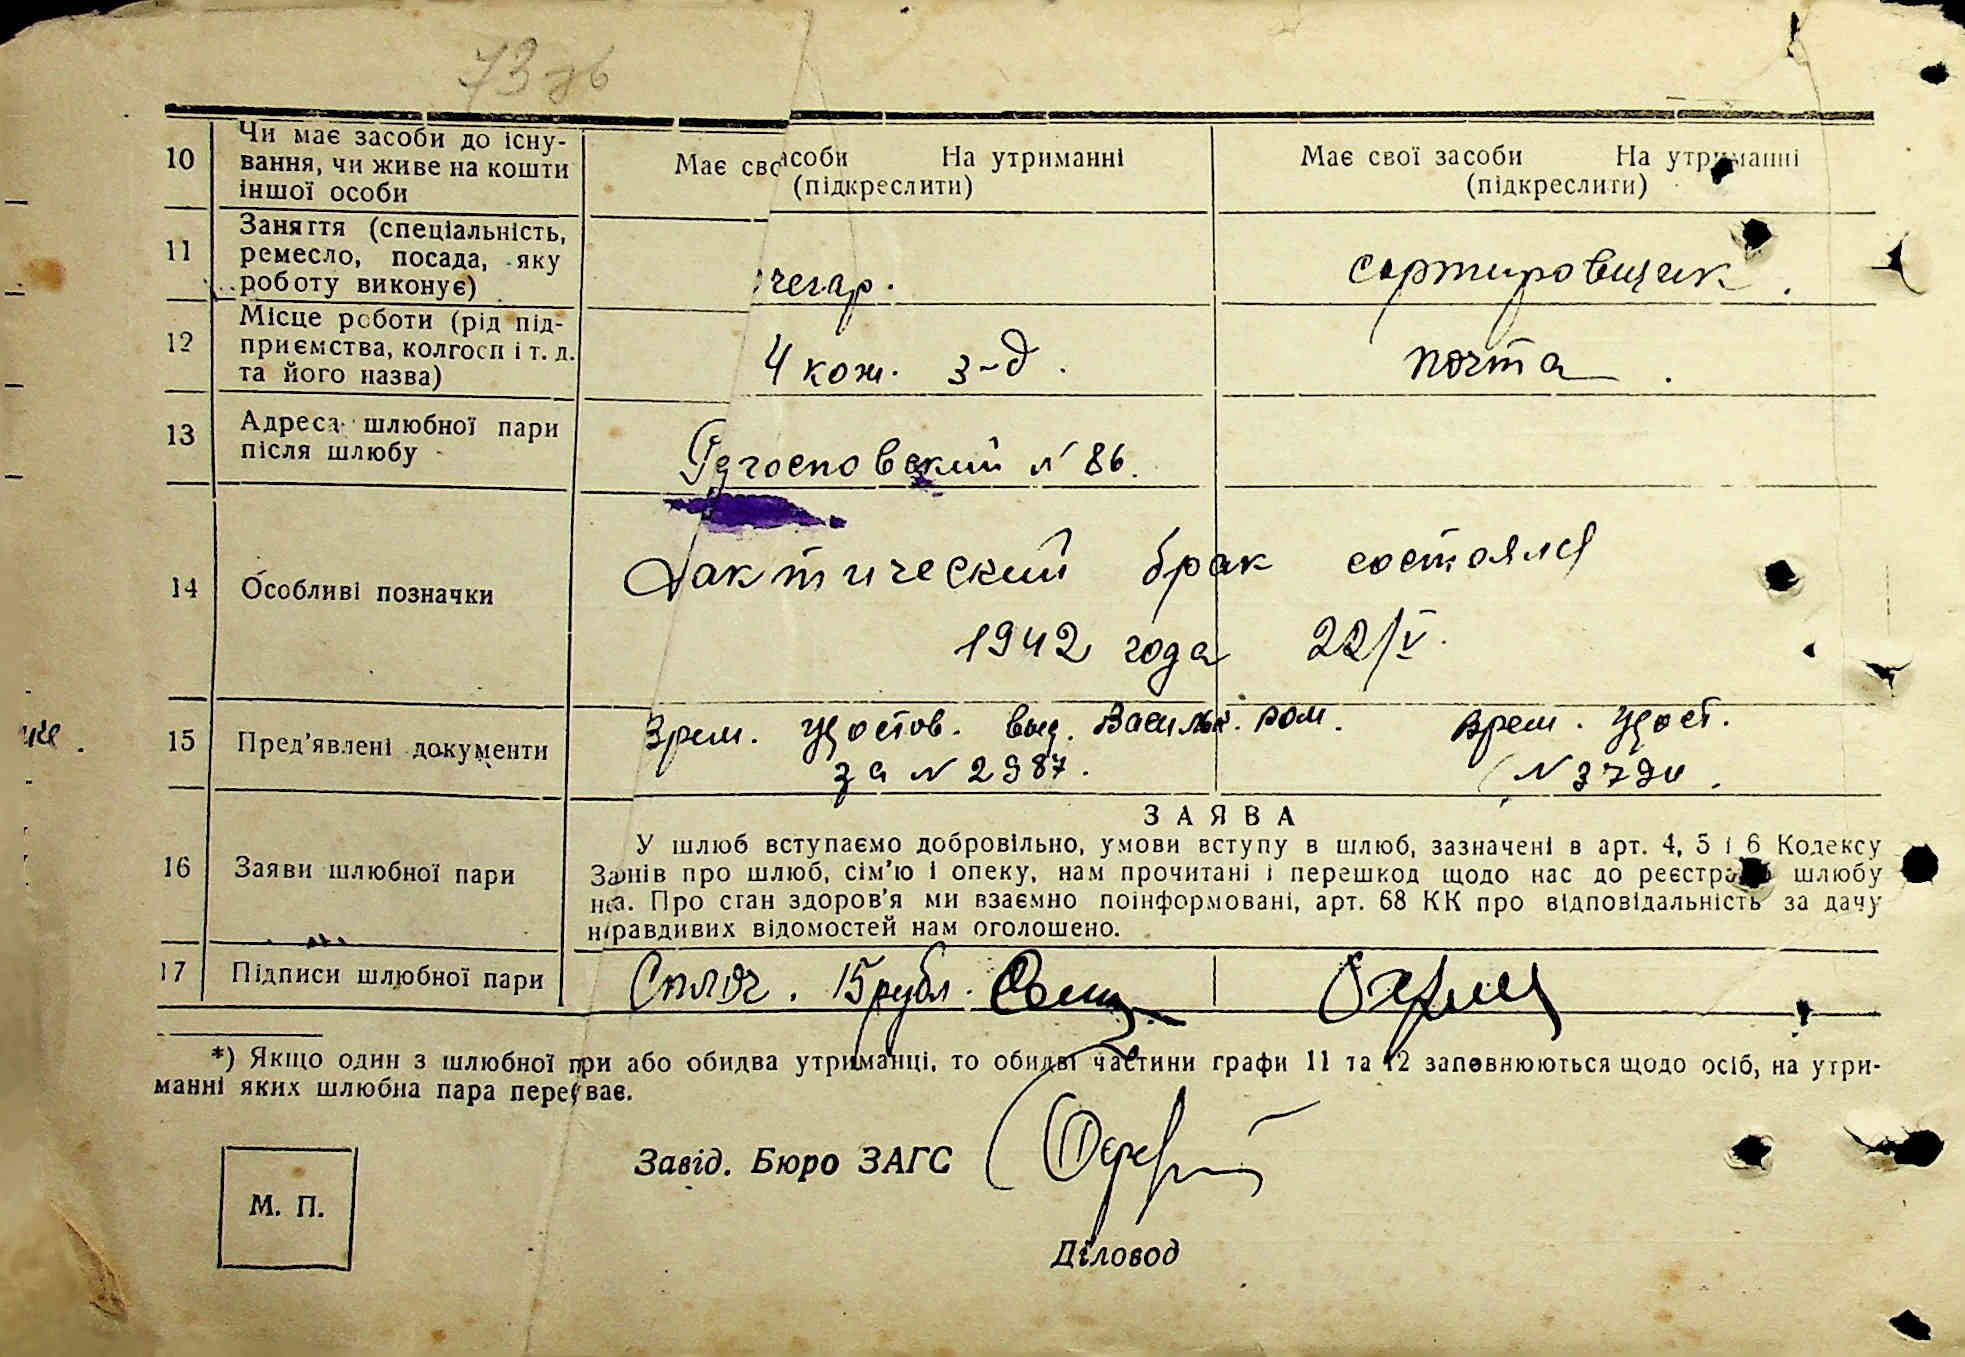 73 зв
10 Чи має засоби до існування, чи живе на кошти іншої особи
Має сво асоби На утриманні (підкреслити)
Має свої засоби На утриманні (підкреслити)
11 Заняття (спеціальність, ремесло, посада, яку роботу виконує)
чегар.
сортировщик.
12 Місце роботи (рід підприємства, колгосп і т. д. та його назва)
4 кож. з-д.
почта.
13 Адреса шлюбної пари після шлюбу
№ 86.
14 Особливі позначки
Фактический брак состоялся
1942 года 22/V.
15 Пред'явлені документи
Врем. удостов. выд. Васильк. ром.
за № 2987.
врем. удост.
№ 3790.
16 Заяви шлюбної пари
ЗАЯВА
У шлюб вступаємо добровільно, умови вступу в шлюб, зазначені в арт. 4, 5 і 6 Кодексу
За нів про шлюб, сім'ю і опеку, нам прочитані і перешкод щодо нас до реєстра шлюбу
н а. Про стан здоров'я ми взаємно поінформовані, арт. 68 КК про відповідальність за дачу
н правдивих відомостей нам оголошено.
17 Підписи шлюбної пари
Сплоч. 15 рубл.
*) Якщо один з шлюбної п ри або обидва утриманці, то обидві частини графи 11 та 12 заповнюються щодо осіб, на утри-
манні яких шлюбна пара пере ває.
Завід. Бюро ЗАГС
М. П.
Діловод